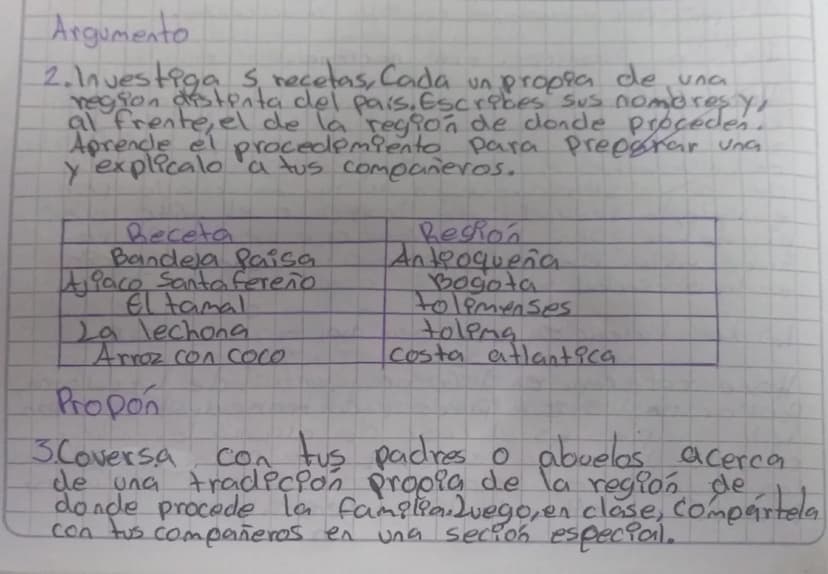 Argumento
2. Investiga 5 recetas, Cada un propia de una
region distinta del pais. Escribes sus nombres y,
al frente, el de la región de donde proceden.
Aprende el procedimiento para preparar una
y explicalo a tus compañeros.
Receta Región
Bandeja Paisa Antioqueña
Ajiaco Santafereño Bogota
El tamal tolimenses
La lechona tolima
Arroz con coco costa atlantica
Propón
3. Coversa con tus padres o abuelos acerca
de una tradición propia de la región de
donde procede la familia. Luego, en clase, compártela
con tus compañeros en una seción especial.